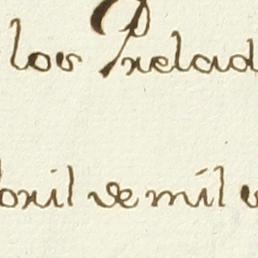 los Prelad
bril de mil